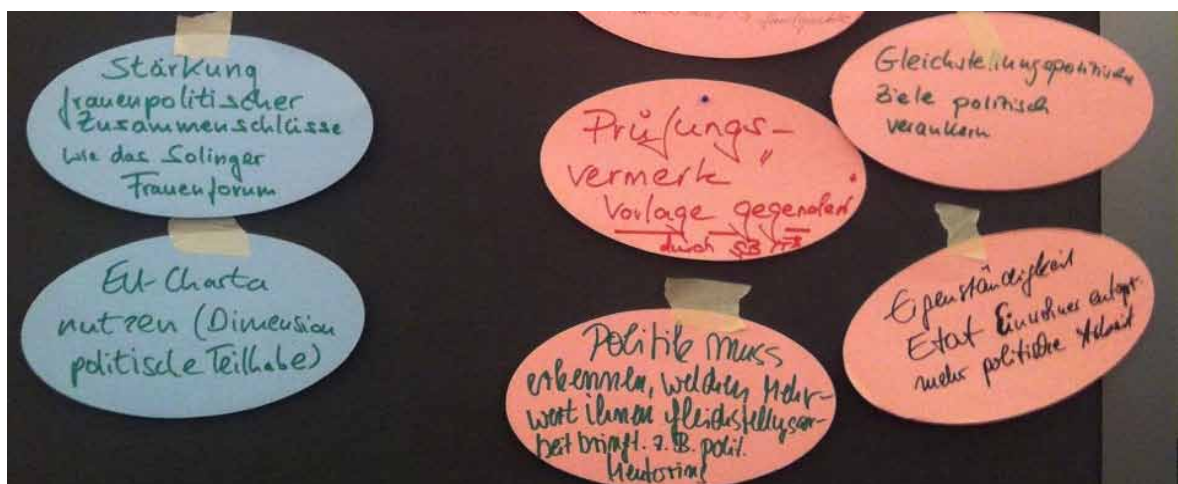 Stärkung
frauenpolitischer
Zusammenschlüsse
wie das Solinger
Frauenforum
EU-Charta
nutzen (Dimension
politische Teilhabe)
Prüfungs-
vermerk "
Vorlage
durch
Politik muss
erkennen, welchen Mehr-
wert ihnen Gleichstellungsar-
beit bringt. z.B. polit.
Mentoring
Gleichstellungspolitische
Ziele politisch
verankern
Eigenständigkeit
Etat Einwohner
mehr politische Arbeit